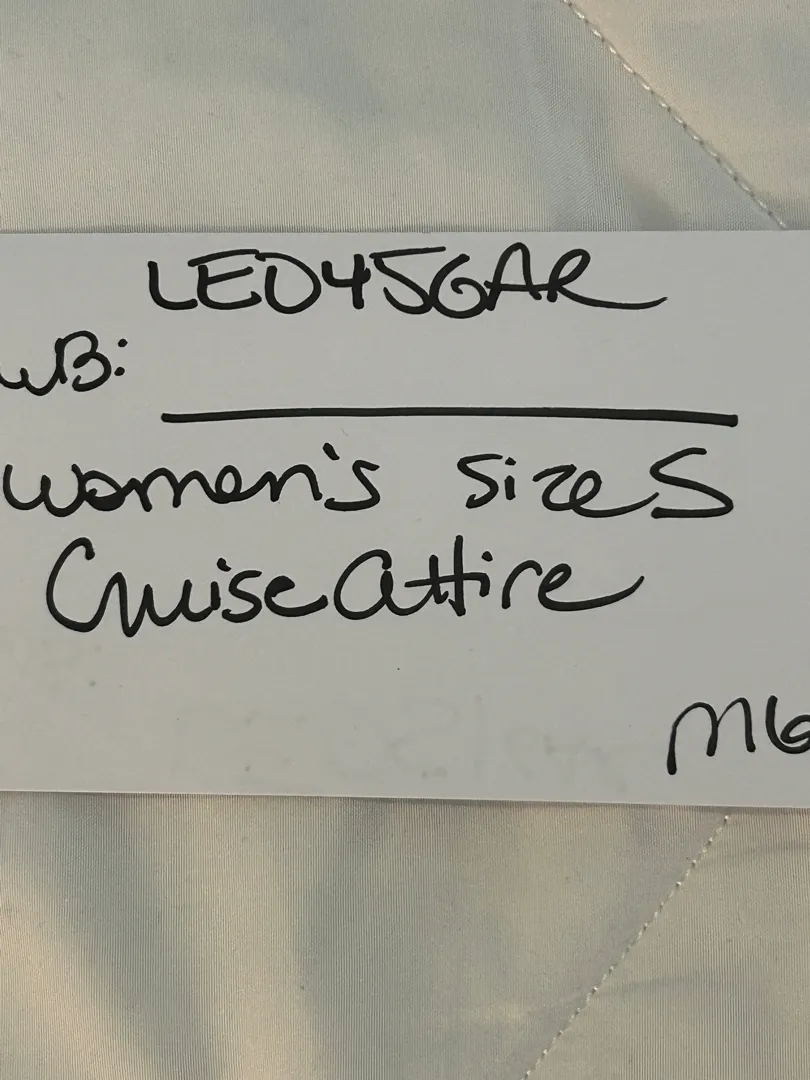 LED456AR
WB:
women's size S
Cruise attire
MG